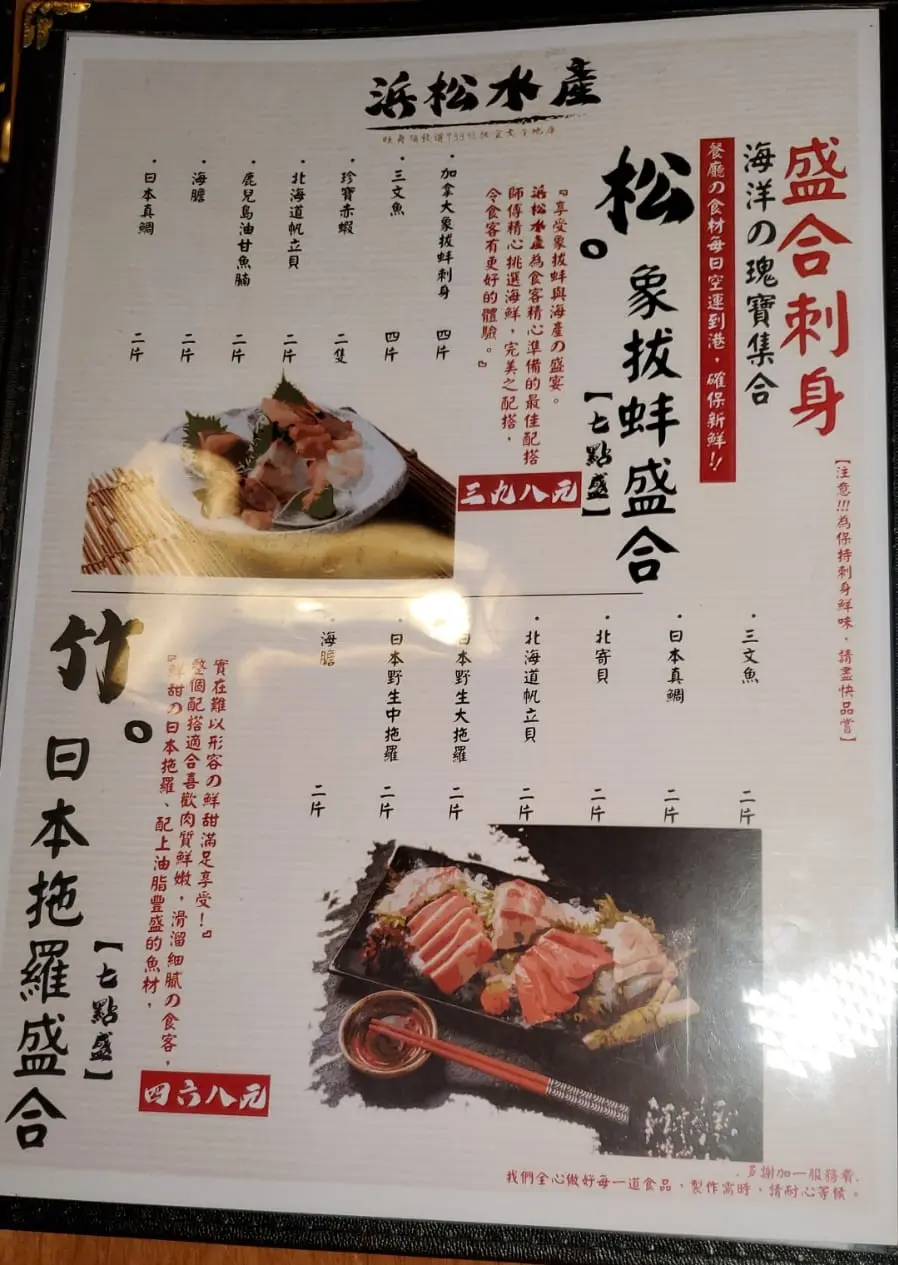 浜松水產
盛合刺身
海洋の瑰寶集合
餐廳の食材每日空運到港，確保新鮮!!
【注意!!!為保持刺身鮮味，請盡快品嘗】
松。
象拔蚌盛合
【七點盛】
『享受象拔蚌與海產の盛宴。
浜松水產為食客精心準備的最佳配搭
師傅精心挑選海鮮，完美之配搭，
令食客有更好的體驗。』
三九八元
・加拿大象拔蚌刺身 四片
・三文魚 四片
・珍寶赤蝦 二隻
・北海道帆立貝 二片
・鹿兒島油甘魚腩 二片
・海膽 二片
・日本真鯛 二片
・三文魚 二片
・日本真鯛 二片
・北寄貝 二片
・北海道帆立貝 二片
・日本野生大拖羅 二片
・日本野生中拖羅 二片
・海膽 二片
實在難以形容の鮮甜滿足享受！』
整個配搭適合喜歡肉質鮮嫩，滑溜細膩の食客，
『鮮甜の日本拖羅、配上油脂豐盛的魚材，
四六八元
竹。
日本拖羅盛合
【七點盛】
．多謝加一服務費．
我們全心做好每一道食品，製作需時，請耐心等候。